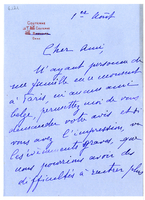 1er Août
Cher Ami,
N'ayant personne de
ma famille en ce moment
à Paris, ni aucun ami
belge, permettez moi de vous
demander votre avis et si
vous avez l'impression, vu
les événements graves, que
nous pourrions avoir des
difficultés à rentrer plus